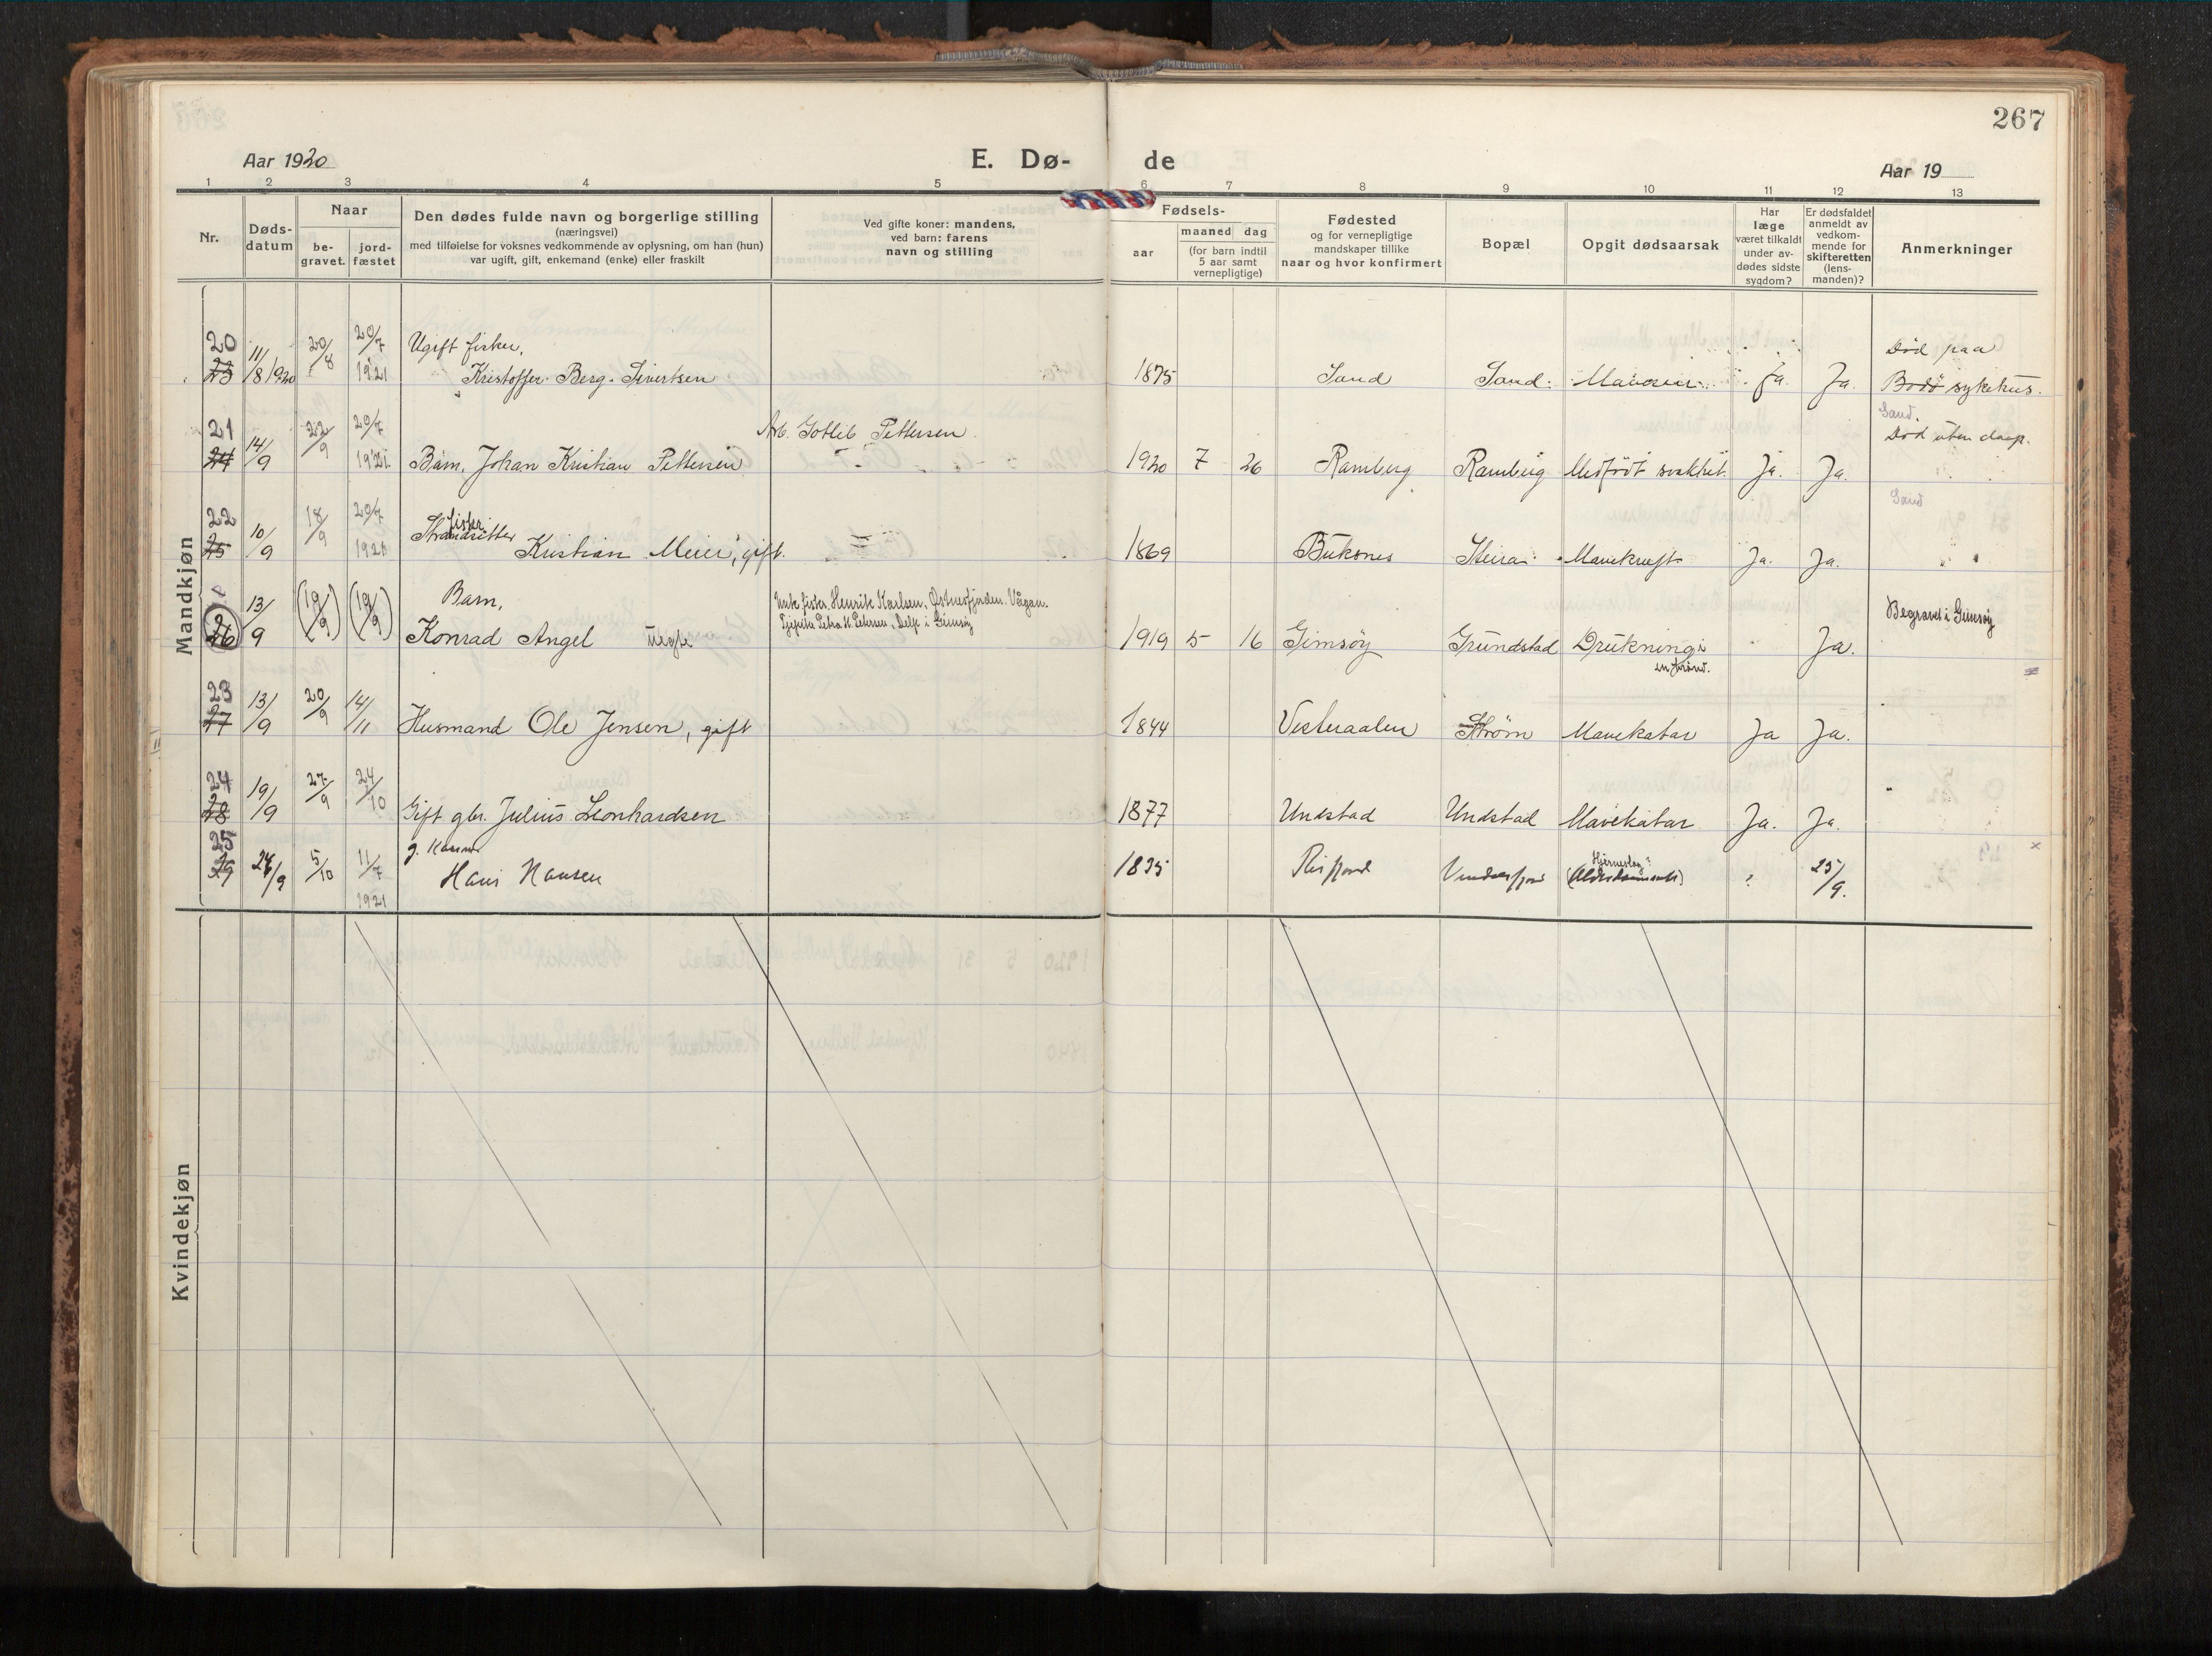 267
Aar 1920
E. Dø-
de
Aar 19
1 2 3 4 5 6 7 8 9 10 11 12 13
Nr.
Døds-
datum
Naar
be-
gravet.
jord-
fæstet
Den dødes fulde navn og borgerlige stilling
(næringsvei)
med tilføielse for voksnes vedkommende av oplysning, om han (hun)
var ugift, gift, enkemand (enke) eller fraskilt
Ved gifte koner: mandens,
ved barn: farens
navn og stilling
Fødsels-
aar
maaned dag
(for barn indtil
5 aar samt
vernepligtige)
Fødested
og for vernepligtige
mandskaper tillike
naar og hvor konfirmert
Bopæl
Opgit dødsaarsak
Har
læge
været tilkaldt
under av-
dødes sidste
sygdom?
Er dødsfaldet
anmeldt av
vedkom-
mende for
skifteretten
(lens-
manden)?
Anmerkninger
Mandkjøn
20 20/8 20/7 Ugift fisker, Død paa
23 11/8 1920 1921 Kristoffer Berg Sivertsen 1875 Sand Sand Ja. Ja. Bodø sykehus.
Sand.
21 22/9 20/7 Arb. Gotlib Pettersen Død uten daap.
24 14/9 1921 Barn, Johan Kristian Pettersen 1920 7 26 Ramberg Ramberg Medfødt svakhet Ja. Ja.
22 18/9 20/7 fisker Sand
25 10/9 1921 Strandsitter Kristian Meier, gift. 1869 Buksnes Steira Mavekræft Ja. Ja.
(19/9) (19/9) Barn, Henrik Karlsen, Østnesfjorden. Vågan. Begravet i Gimsøy
26 13/9 Konrad Angel uegte 1919 5 16 Gimsøy Grundstad Drukning i Ja.
en brønd.
23 20/9 14/11
27 13/9 Husmand Ole Jensen, gift 1844 Vesteraalen Strøm Mavekatar Ja Ja.
24 27/9 24/10
28 19/9 Gift gbr. Julius Leonhardsen 1877 Unstad Unstad Mavekatar Ja. Ja.
25 g. Kaarm. Hjerneslag?
29 24/9 5/10 11/7 Hans Hansen 1835 Risfjord ? 25/9.
1921
Kvindekjøn